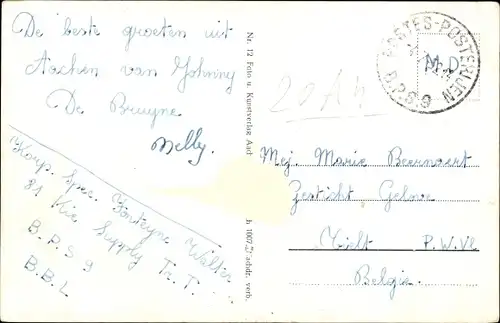 De beste groeten uit
Aachen van Johnny
De Bruyne
Nelly.
Korp. Fonteyne Walter
81 Kie Supply Tr. T.
B.P.S 9
B.B.L
Nr. 12 Foto u. Kunstverlag
h 1007 verb.
POSTES-POSTERIJEN
B.P.S.9
M.D.
Mej. Marie Beernaert
Gesticht Gelove
Tielt P.W.Vl
Belgie.